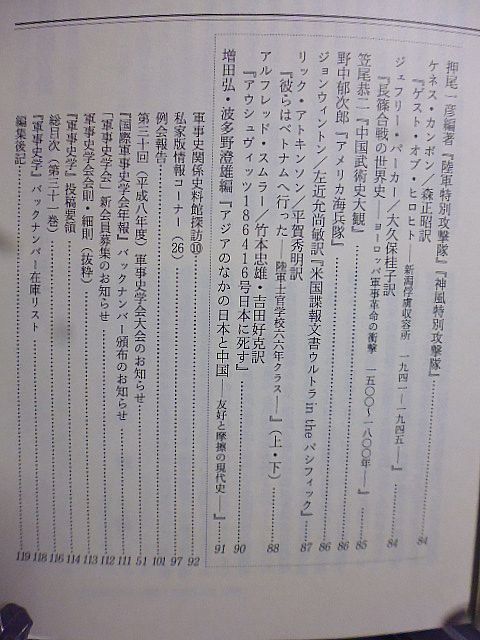 押尾一彦編著『陸軍特別攻撃隊』『神風特別攻撃隊』 84
ケネス・カンボン/森正昭訳
『ゲスト・オブ・ヒロヒト―新潟俘虜収容所 一九四一―一九四五―』 84
ジェフリー・パーカー/大久保桂子訳
『長篠合戦の世界史―ヨーロッパ軍事革命の衝撃 一五〇〇〜一八〇〇年―』 85
笠尾恭二『中国武術史大観』 86
野中郁次郎『アメリカ海兵隊』 86
ジョンウィントン/左近允尚敏訳『米国諜報文書ウルトラ in the パシフィック』 87
リック・アトキンソン/平賀秀明訳
『彼らはベトナムへ行った―陸軍士官学校六六年クラス―』(上・下) 88
アルフレッド・スムラー/竹本忠雄・吉田好克訳
『アウシュヴィッツ186416号日本に死す』 90
増田弘・波多野澄雄編『アジアのなかの日本と中国―友好と摩擦の現代史―』 91
軍事史関係史料館探訪⑩ 92
私家版情報コーナー(26) 97
例会報告 101
第三十回(平成八年度)軍事史学会大会のお知らせ 51
『国際軍事史学会年報』バックナンバー頒布のお知らせ 111
「軍事史学会」新会員募集のお知らせ 112
軍事史学会会則・細則(抜粋) 113
『軍事史学』投稿要領 114
総目次(第三十一巻) 116
『軍事史学』バックナンバー在庫リスト 118
編集後記 119